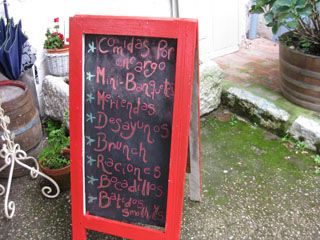 * Comidas Por
encargo
* Mini-Banquets
* Meriendas
* Desayunos
* Brunch
* Raciones
* Bocadillos
* Batidos